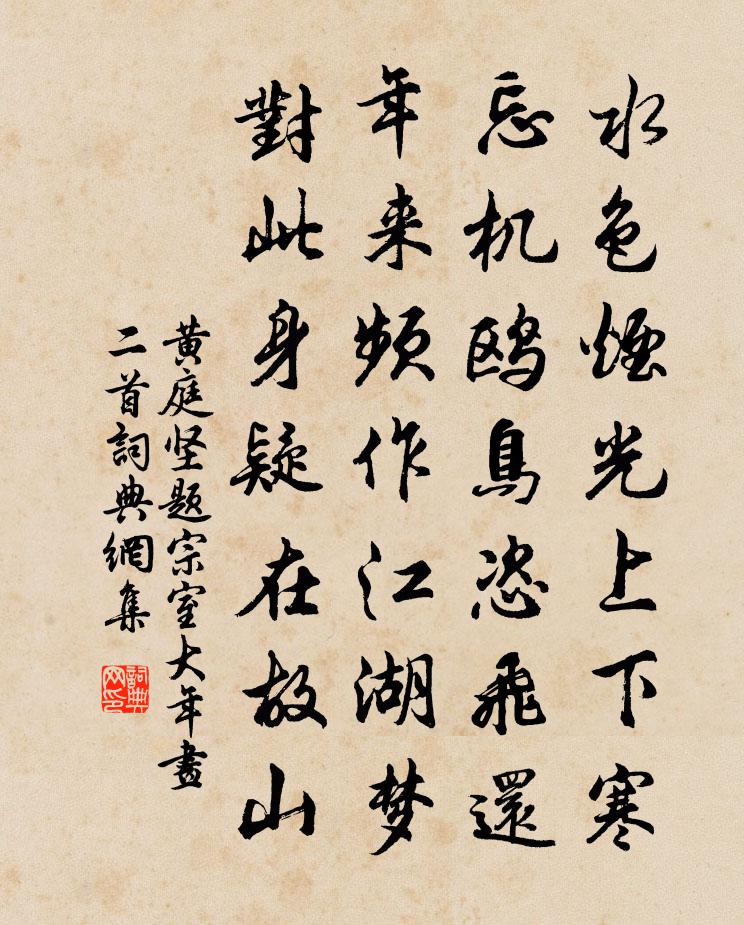 水色煙光上下寒
忘机鸥鳥恣飛還
年来频作江湖梦
對此身疑在故山
黄庭坚题宗室大年畫
二首詞典網集
詞典
网印